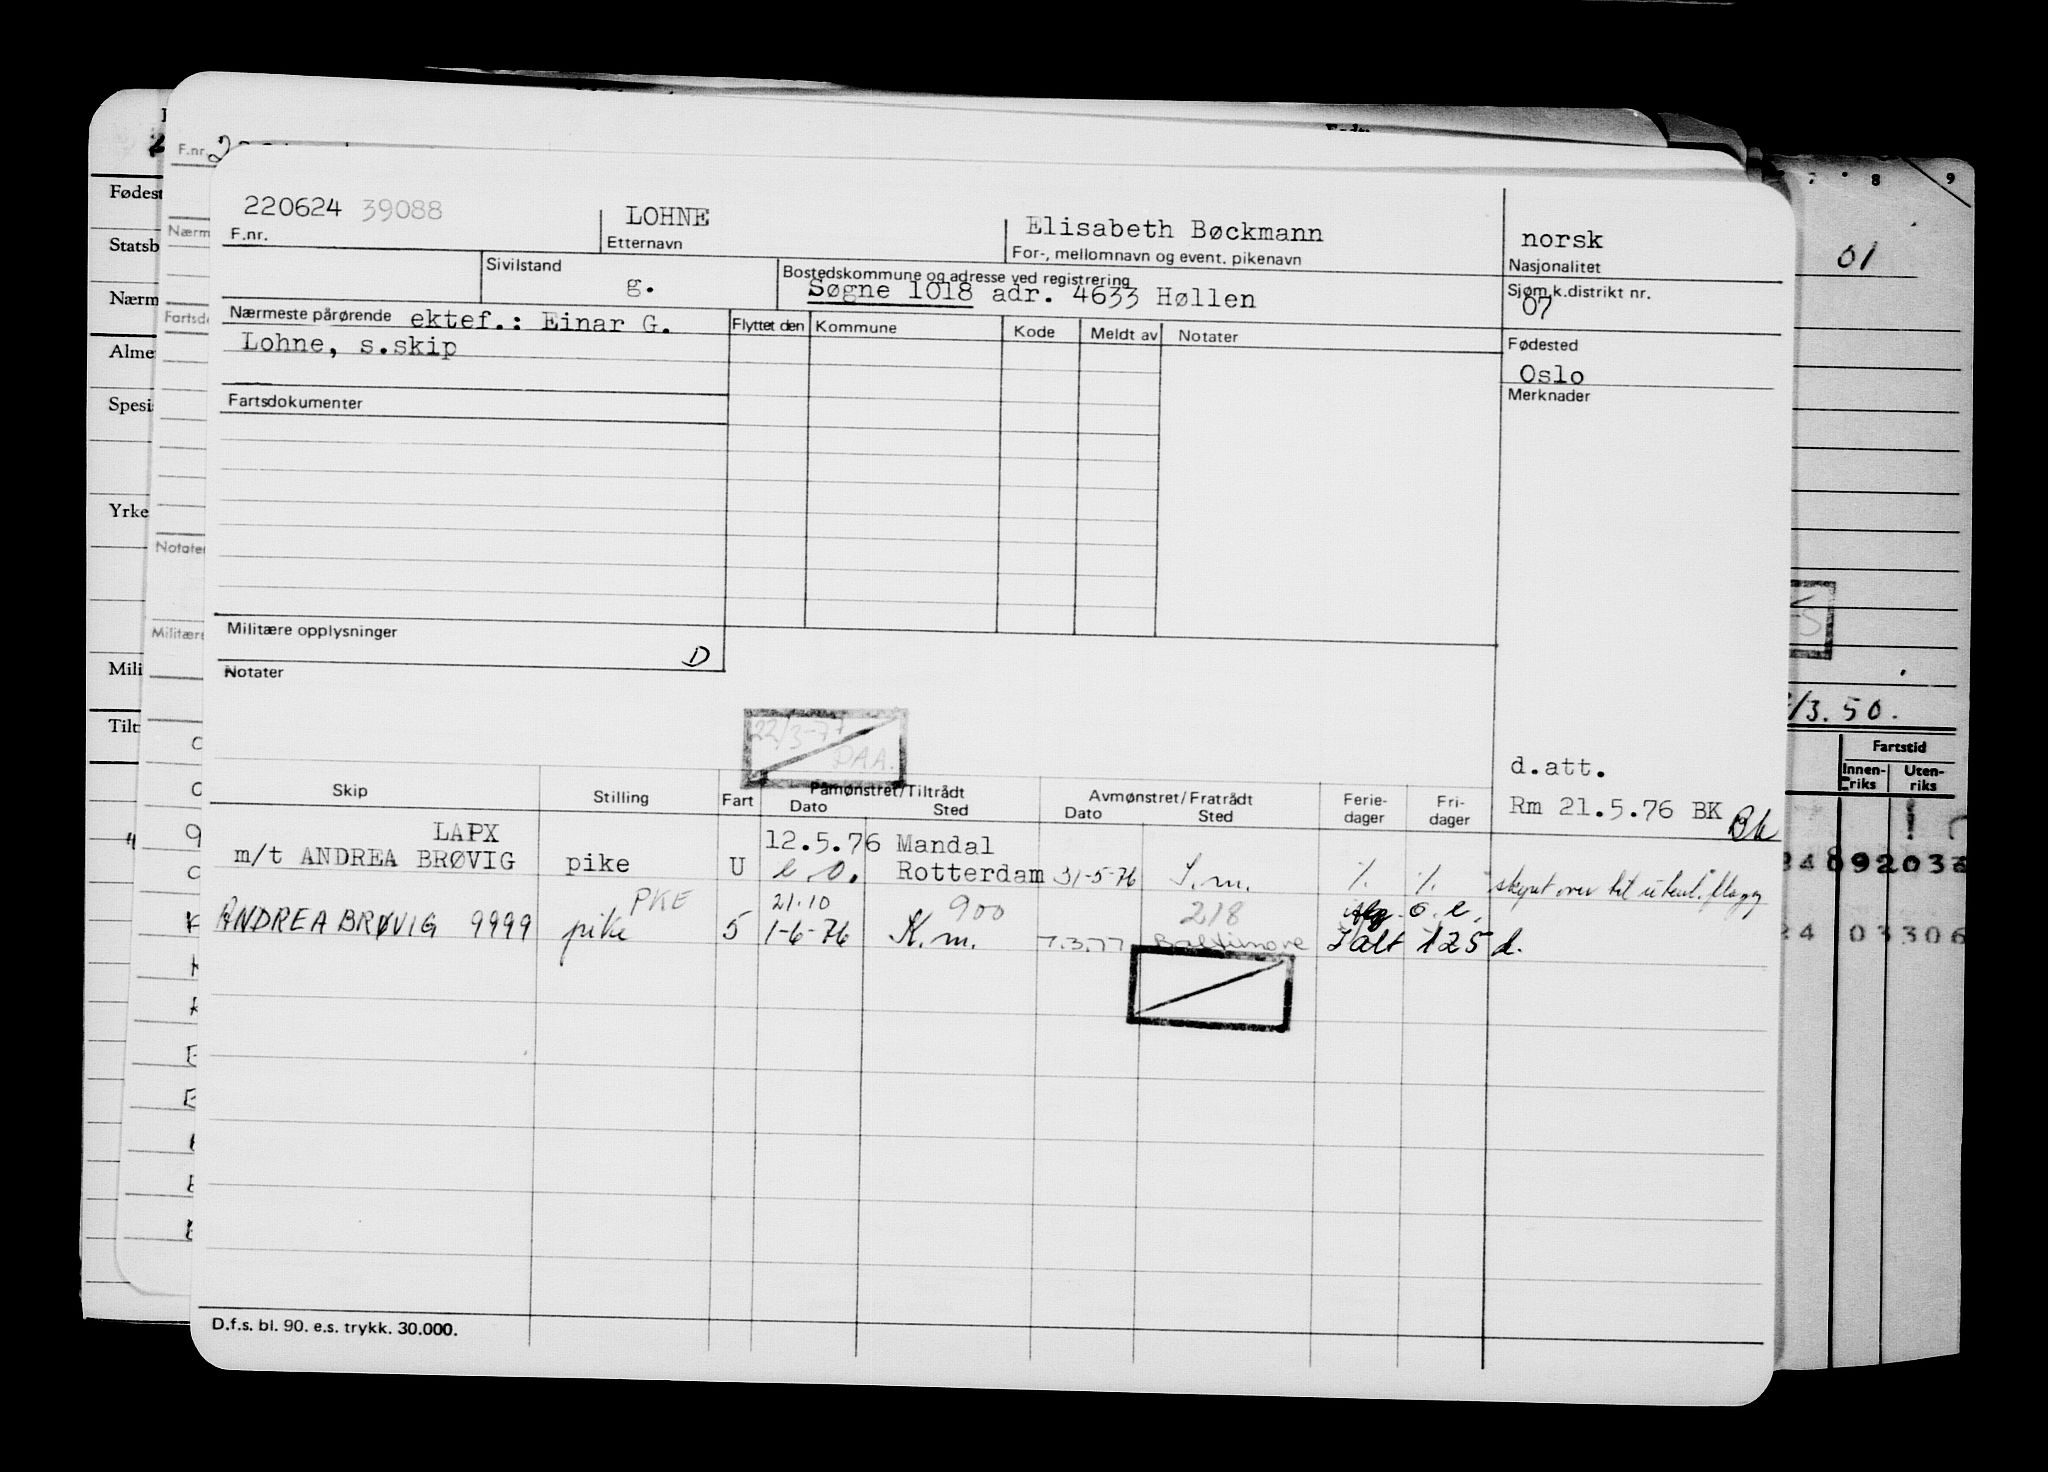 220624 39088
LOHNE
Elisabeth Bøckmann
norsk
F.nr.
Etternavn
For-, mellomnavn og event. pikenavn
Nasjonalitet
Sivilstand
g.
Bostedskommune og adresse ved registrering
Søgne 1018 adr. 4633 Høllen
Sjøm.k.distrikt nr.
07
Nærmeste pårørende ektef.: Einar G.
Lohne, s.skip
Flyttet den Kommune Kode Meldt av Notater
Fødested
Oslo
Merknader
Fartsdokumenter
Militære opplysninger
D
Notater
22/3-77
PAA.
d.att.
Rm 21.5.76 BK Bk
Skip Stilling Fart Påmønstret/Tiltrådt Avmønstret/Fratrådt Ferie- Fri-
Dato Sted Dato Sted dager dager
LAPX 12.5.76 Mandal
m/t ANDREA BRØVIG pike U e.O. Rotterdam 31-5-76 S.m. % % skipet over til utenl. flagg
PKE 21.10 900 218 o. e.
ANDREA BRØVIG 9999 pike 5 1-6-76 K.m. 7.3.77 Baltimore Ialt 125 d.
D.f.s. bl. 90. e.s. trykk. 30.000.
F.nr.
Fødest
Statsb
Nærm
Nærm
Fartsdo
Alme
Spesi
Yrke
Notater
Militære
Mili
Tilt
8 9
01
/3.50.
Fartstid
Innen- Uten-
riks riks
24 03306